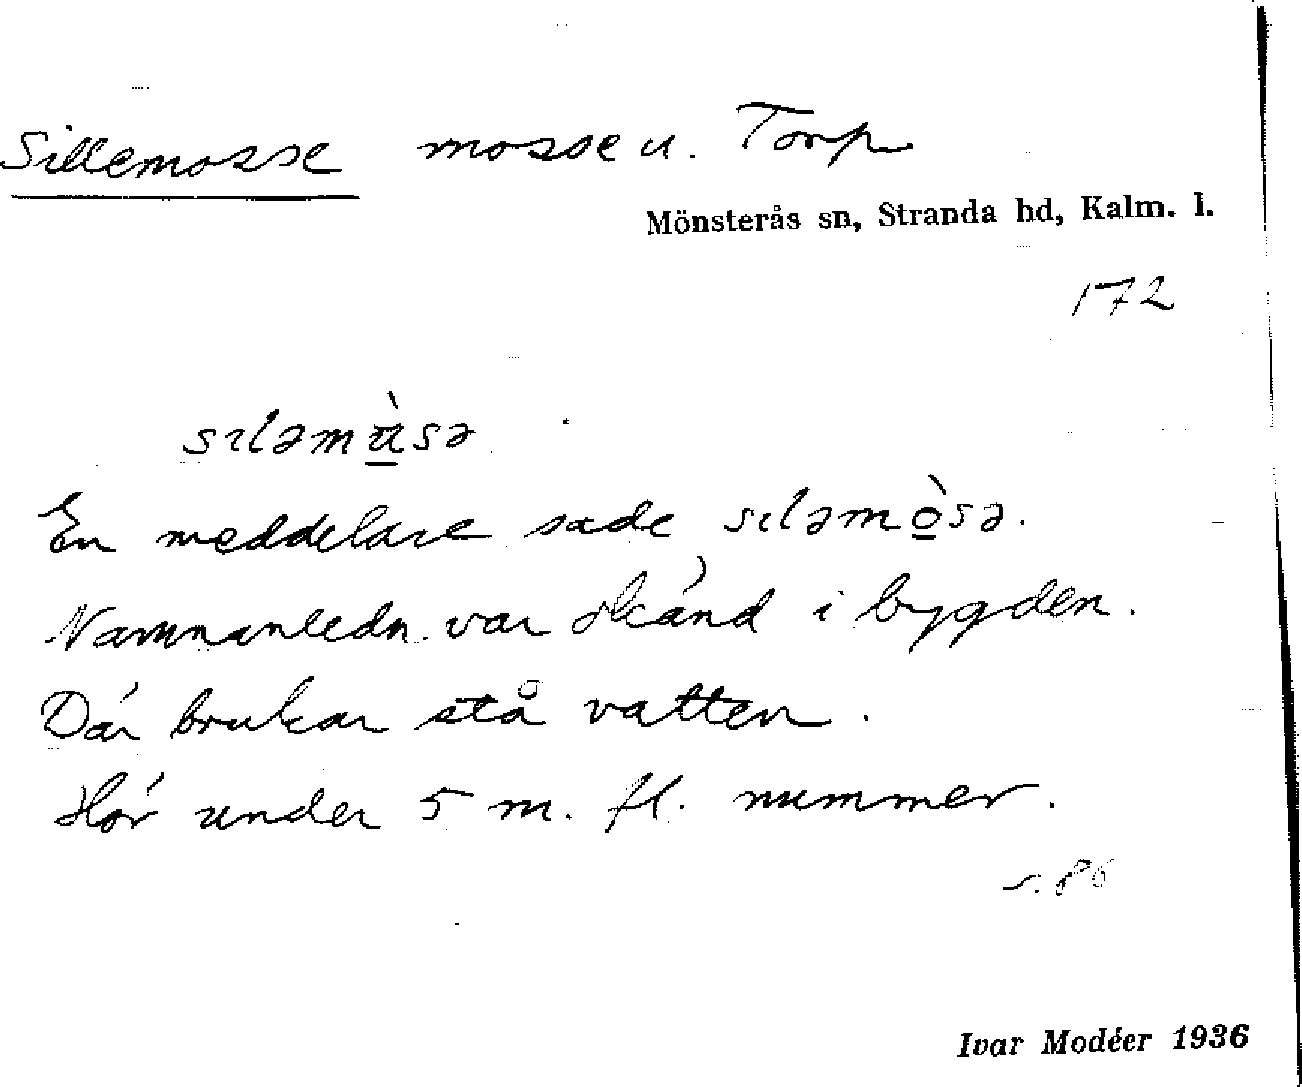 Sillemosse mosse u. Torp
Mönsterås sn, Stranda hd, Kalm. l.
172
sıləmàsə
En meddelare sade sıləmòsə.
Namnanledn. var okänd i bygden.
Där brukar stå vatten.
Hör under 5 m. fl. nummer.
s. 86
Ivar Modéer 1936